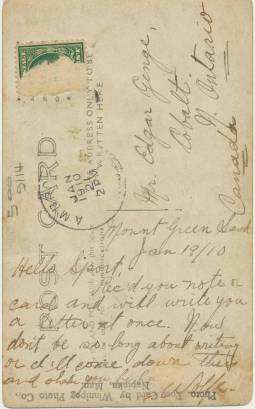 Mr. Edgar Genge,
Cobalt.
N. Ontario
Canada
POST CARD
ADDRESS ONLY TO BE
WRITTEN HERE
JAN
1910
500
9114
Mount Green Sask
Jan 19/10
Hello Sport,
Rec'd you note or
card and will write you
a letter at once. Now
don't be so long about writing
or I'll come down there
and shake you
Photo Post Card by Winnipeg Photo Co.,
Neepawa, Man.